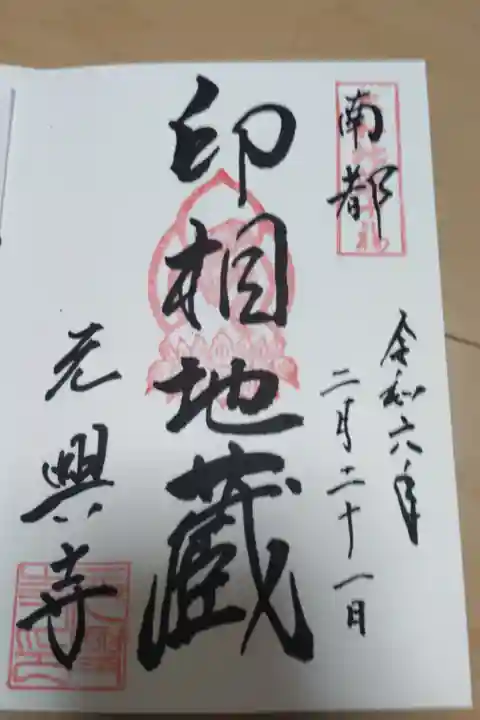 南都
令和六年
二月二十一日
印相地蔵
元興寺